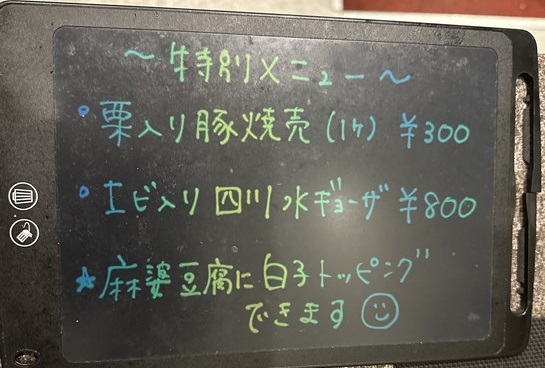 ～特別メニュー～
・栗入り豚焼売(1ヶ) ¥300
・エビ入り四川水ギョーザ ¥800
★麻婆豆腐に白子トッピング
できます☺